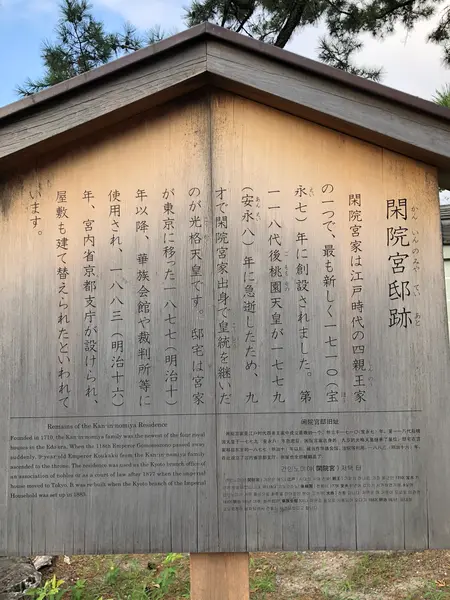 閑院宮邸跡
かんいんのみやていあと
閑院宮家は江戸時代の四親王家
の一つで、最も新しく一七一〇(宝
永七)年に創設されました。第
一一八代後桃園天皇が一七七九
(安永八)年に急逝したため、九
才で閑院宮家出身で皇統を継いだ
のが光格天皇です。邸宅は宮家
が東京に移った一八七七(明治十)
年以降、華族会館や裁判所等に
使用され、一八八三(明治十六)
年、宮内省京都支庁が設けられ、
屋敷も建て替えられたといわれて
います。
Remains of the Kan-in-nomiya Residence
Founded in 1710, the Kan-in-nomiya family was the newest of the four royal
houses in the Edo era. When the 118th Emperor Gomomozono passed away
suddenly, 9-year-old Emperor Koukaku from the Kan-in-nomiya family
ascended to the throne. The residence was used as the Kyoto branch office of
an association of nobles or as a court of law after 1877 when the imperial
house moved to Tokyo. It was re-built when the Kyoto branch of the Imperial
Household was set up in 1883.
闲院宫邸旧址